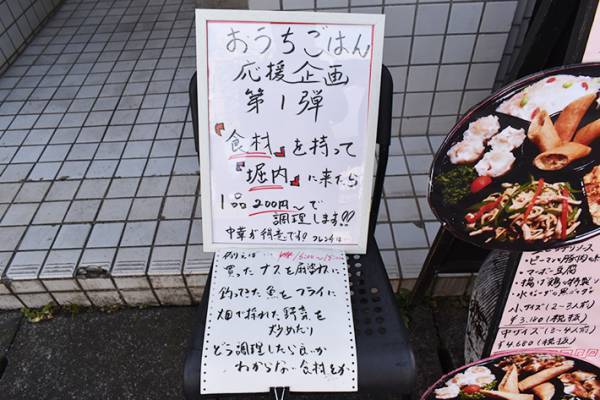 おうちごはん
応援企画
第1弾
『食材』を持って
『堀内』に来たら
1品200円〜で
調理します!!
中華が得意です!
例えば
買ったナスを麻婆に
釣ってきた魚をフライに
畑で採れた野菜を
炒めたり
どう調理したら良いか
わからない食材とか
チリソース
ピーマン豚肉
・マーボー豆腐
・揚げ鶏の特製
・水ギョーザ
小サイズ(2〜3人前)
¥3,180(税抜)
中サイズ(3〜4人前)
¥4,680(税抜)